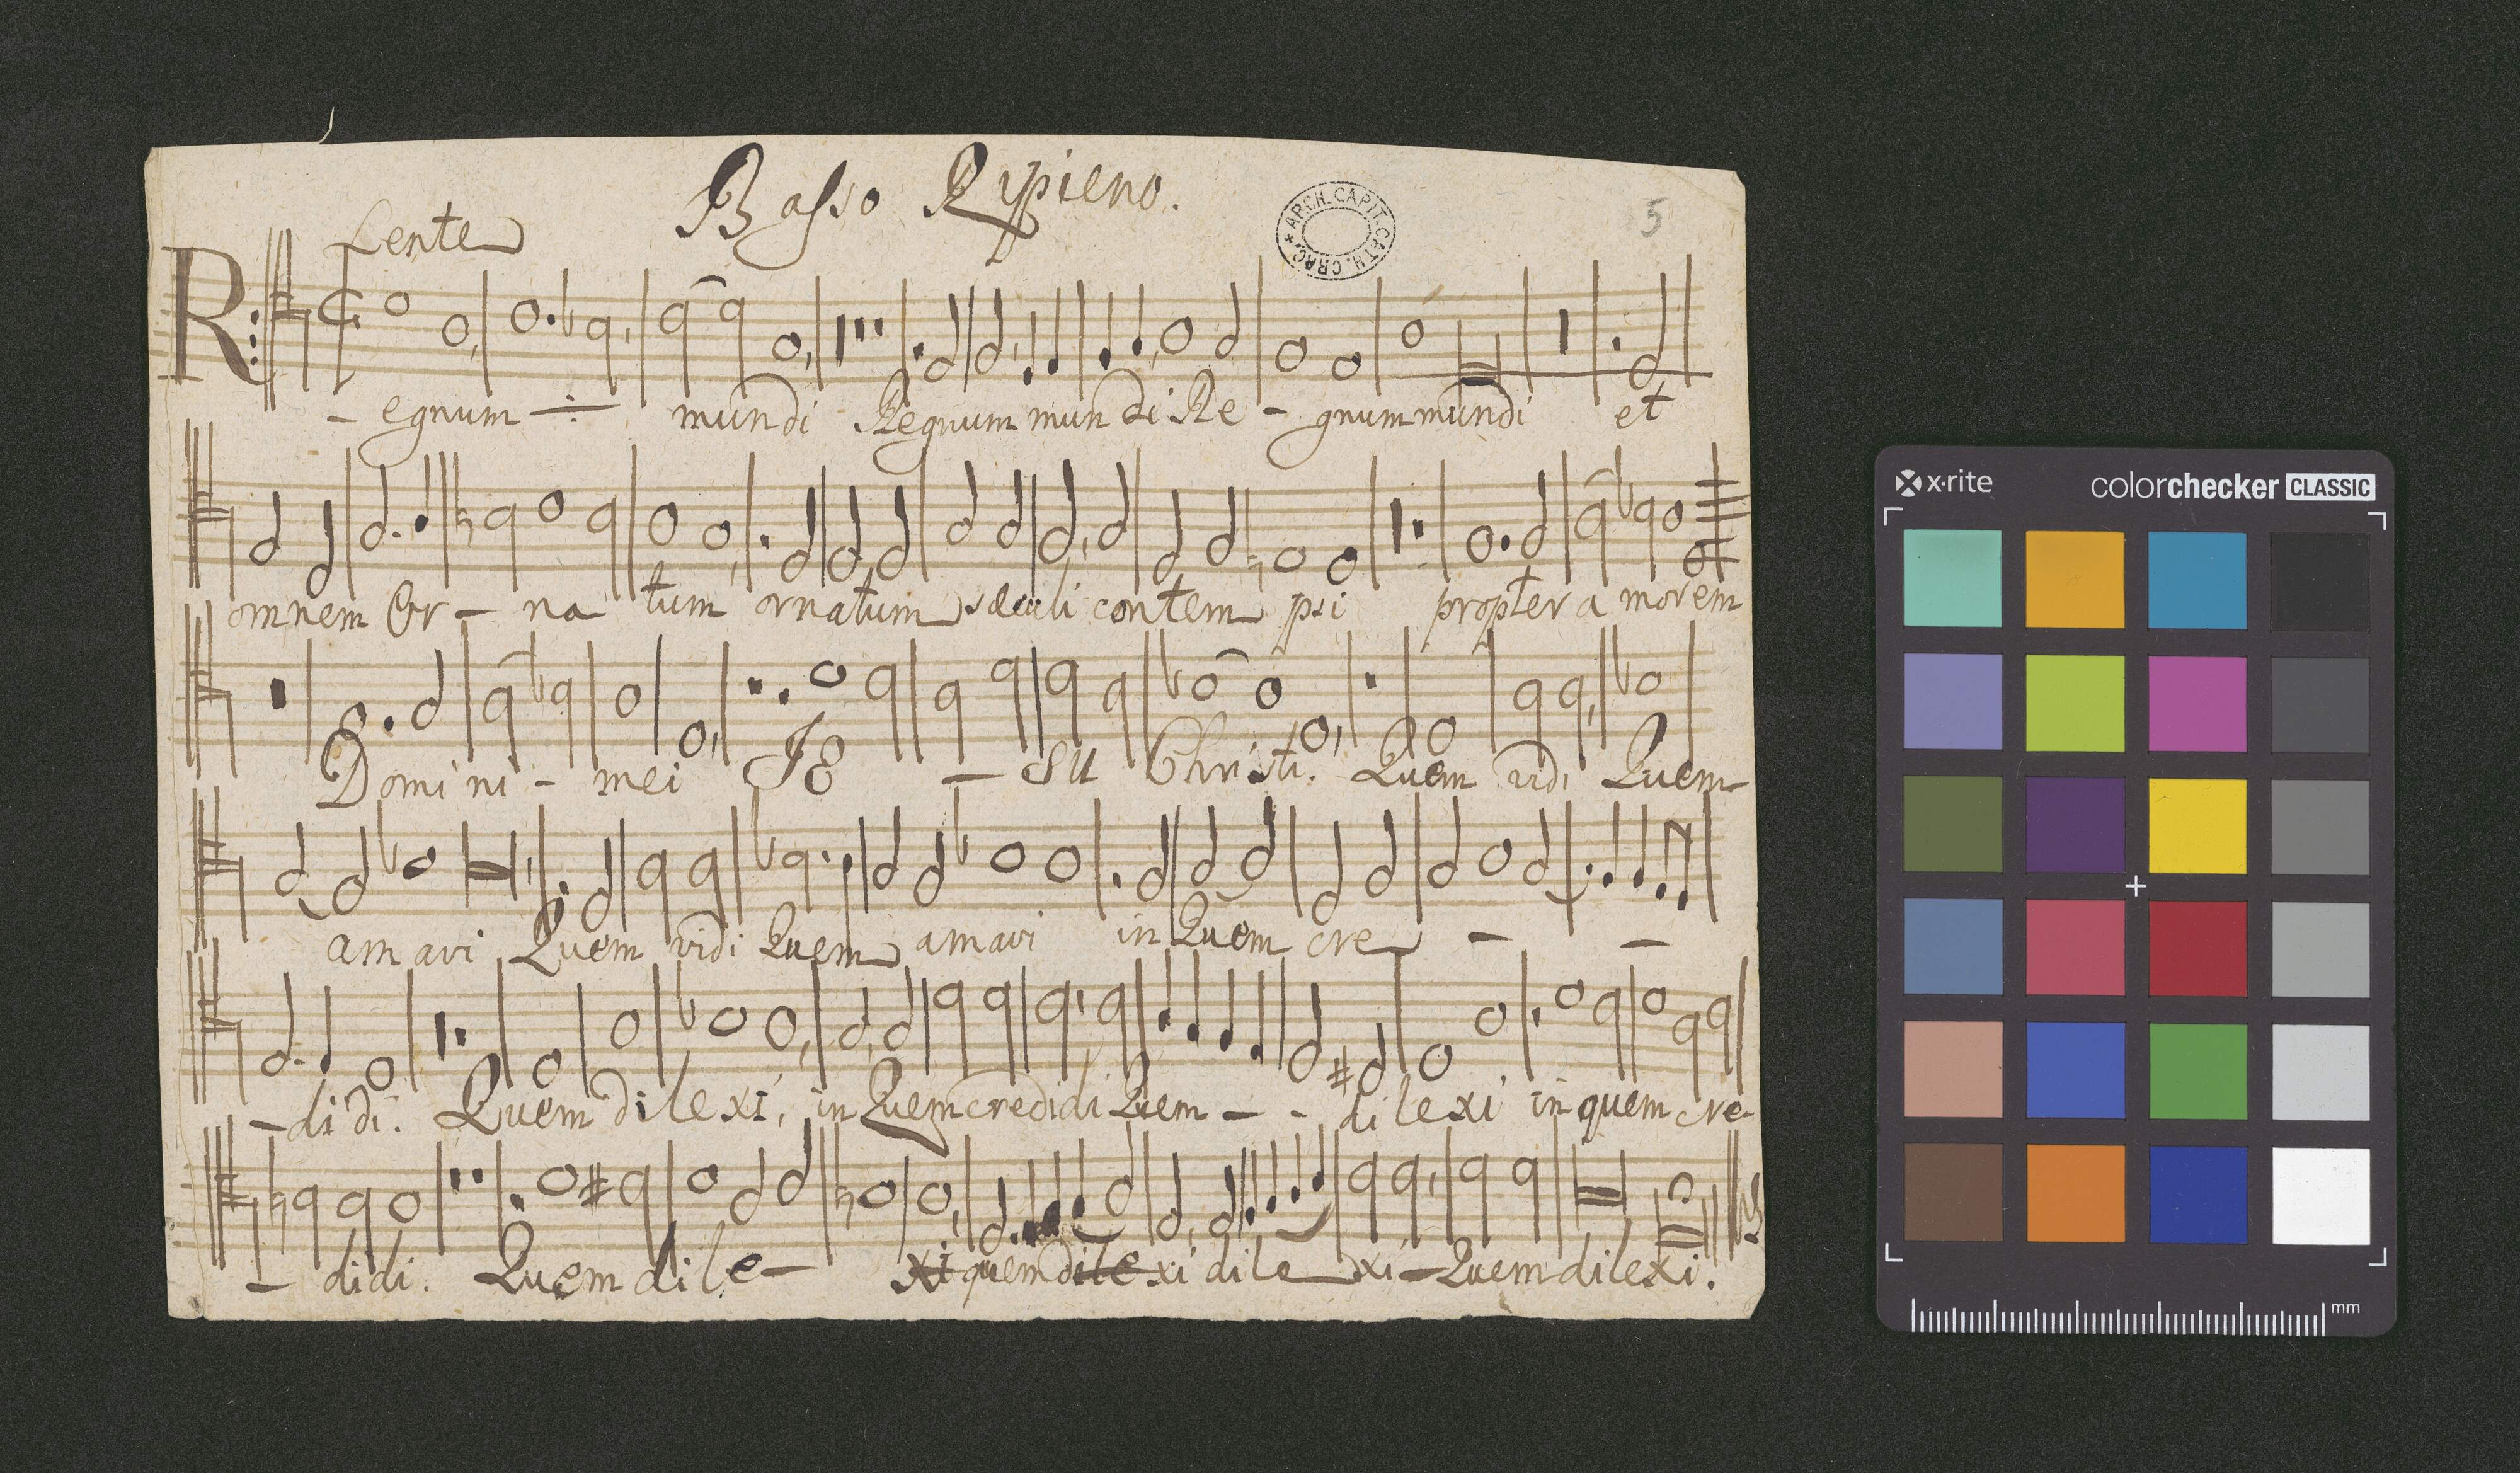 Basso Ripieno.
ARCH. CAPIT. CATH. CRAC. *
5
Lente
R:
- egnum ÷ mundi Regnum mundi Re - gnum mundi et
omnem Or - na tum ornatum sæculi contem psi propter a morem
Domini - mei JE - SU Christi. Quem vidi Quem
amavi Quem vidi Quem amavi in Quem cre - -
- didi. Quem dilexi, in Quem credidi Quem - - dilexi in quem cre-
- didi. Quem dile - xi quem dilexi dile xi - Quem dilexi.
x-rite colorchecker CLASSIC
mm